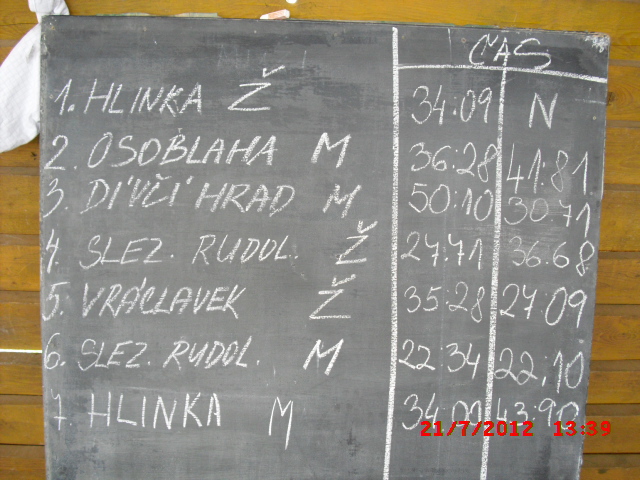 ČAS
1. HLINKA Ž 34:09 N
2. OSOBLAHA M 36:28 41:81
3. DÍVČÍ HRAD M 50:10 30:71
4. SLEZ. RUDOL. Ž 27:71 36.68
5. VRÁCLAVEK Ž 35:28 27:09
6. SLEZ. RUDOL. M 22:34 22,10
7. HLINKA M
21/7/2012 13:39